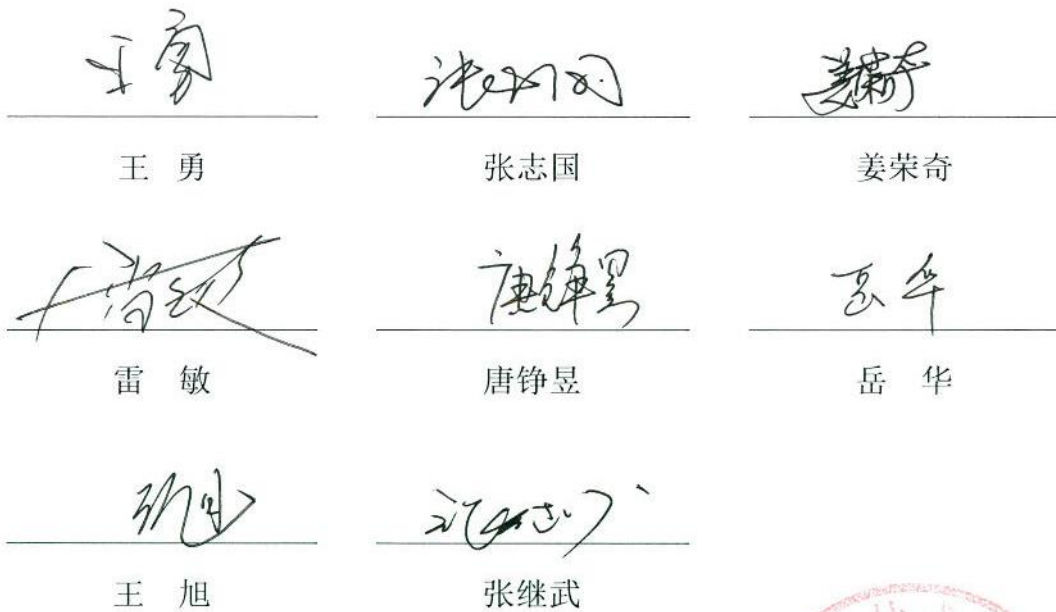 王勇 张志国 姜荣奇
王 勇 张志国 姜荣奇
雷敏 唐铮昱 岳华
雷 敏 唐铮昱 岳 华
王旭 张继武
王 旭 张继武